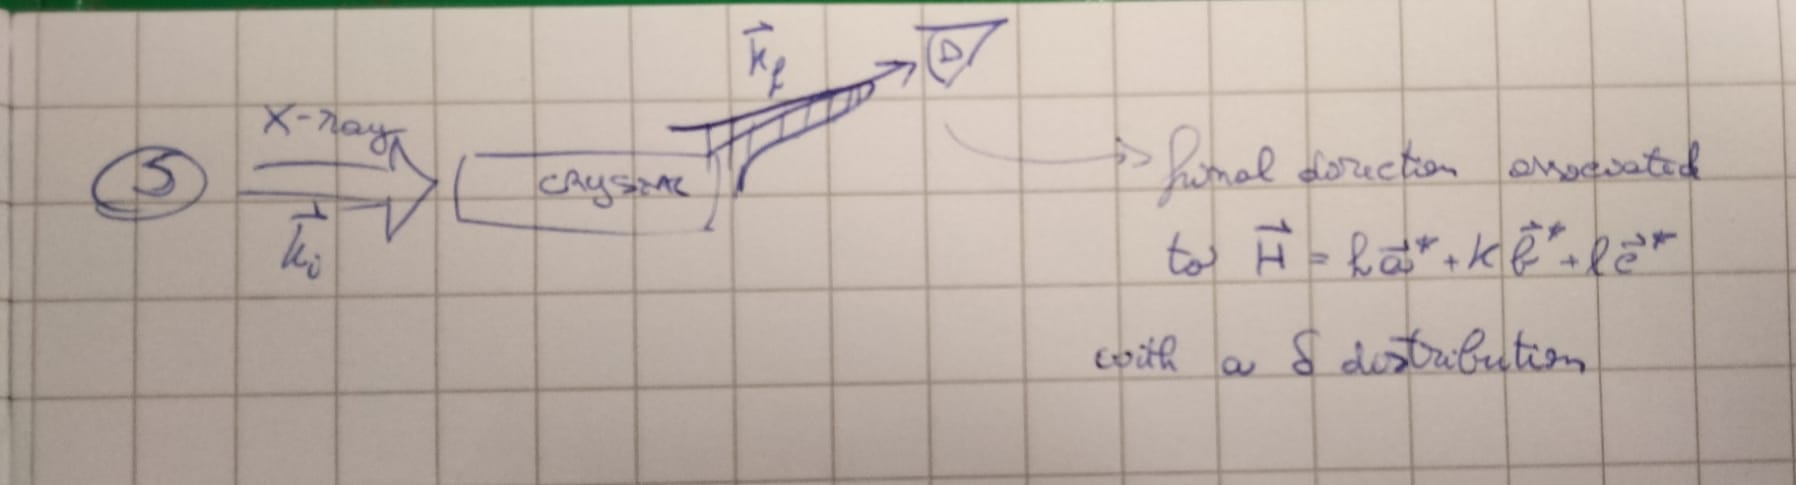 $\vec{k}_f$
D
X-ray
S
CRYSTAL
$\vec{k}_i$
final direction associated
to $\vec{H} = h\vec{a}^* + k\vec{b}^* + l\vec{c}^*$
with a δ distribution